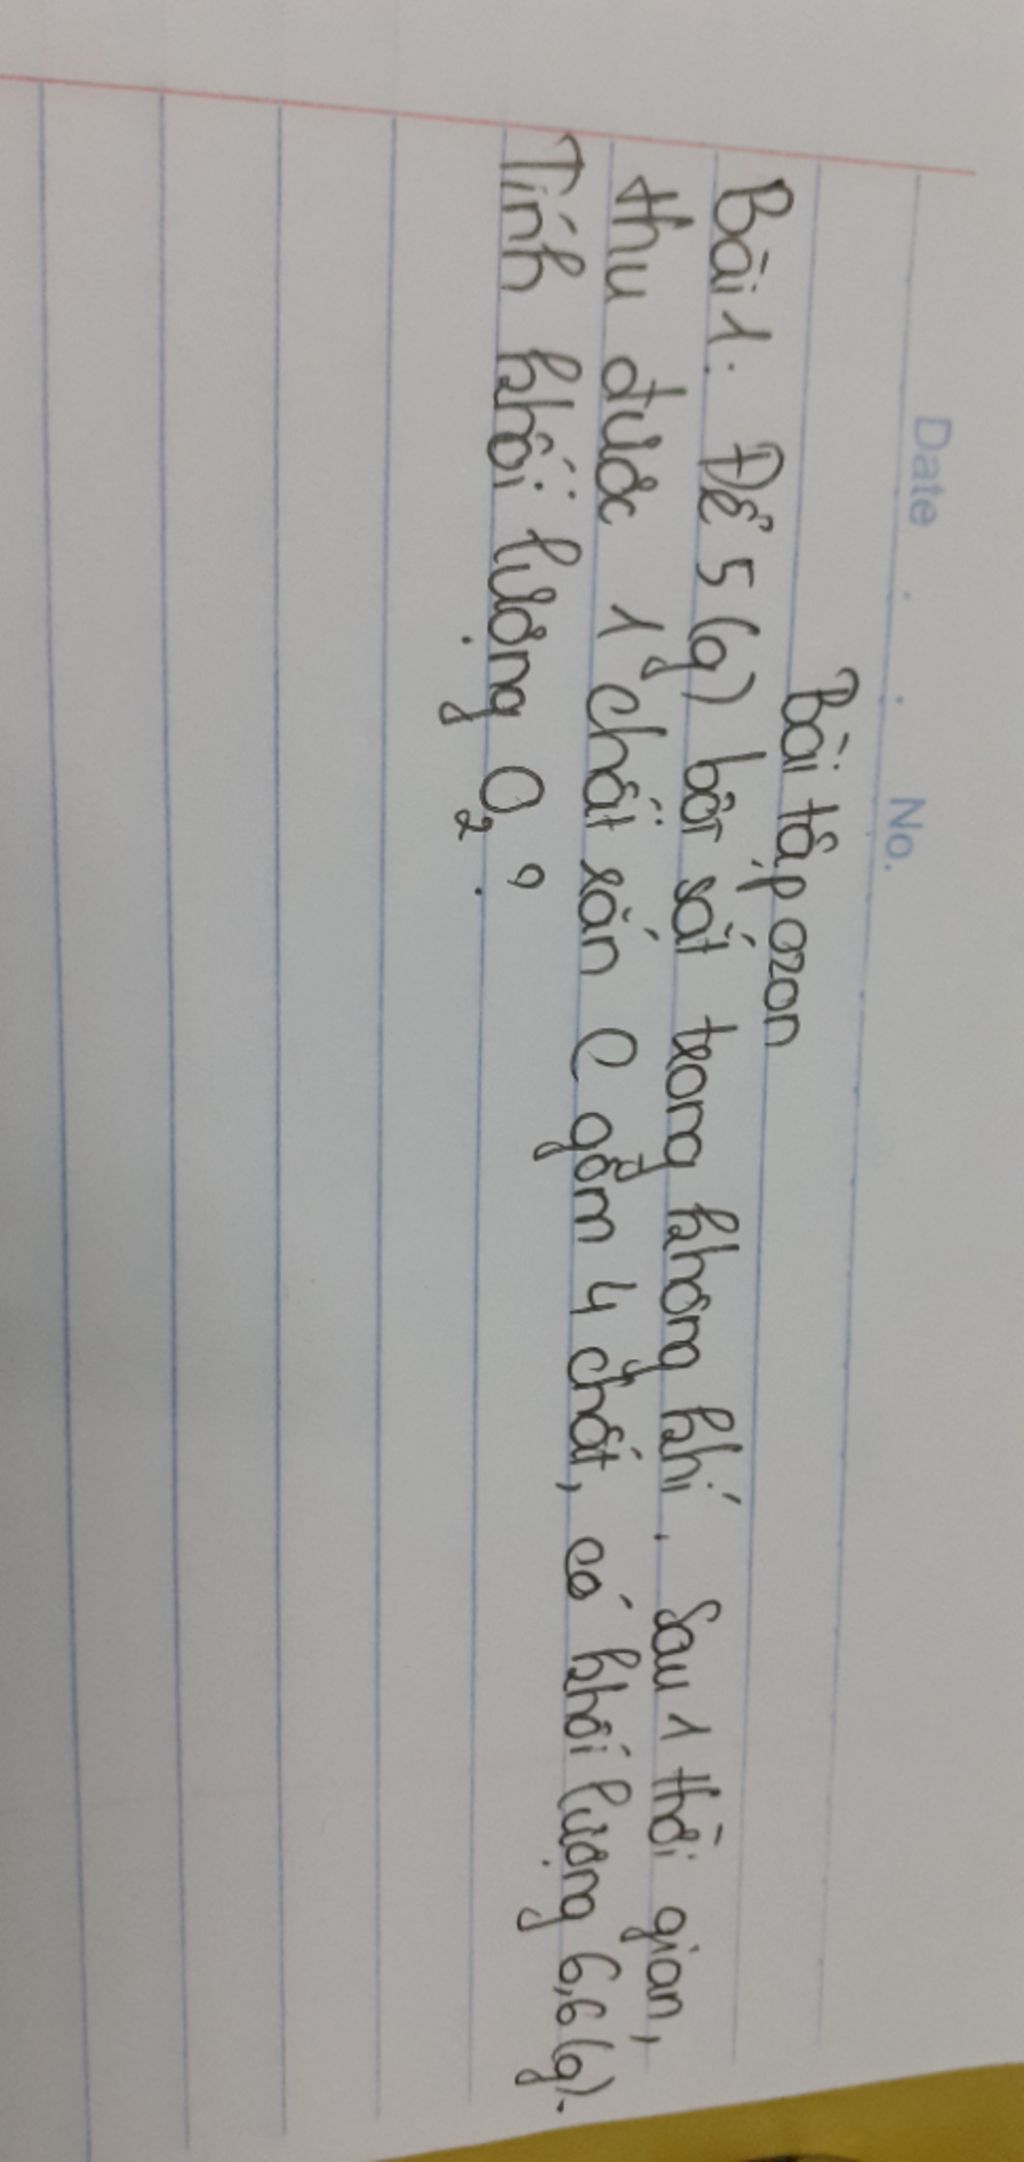 Date . . No.
Bài tập ozon
Bài 1. Để 5 (g) bột sắt trong không khí. Sau 1 thời gian,
thu được 1 chất rắn C gồm 4 chất, có khối lượng 6,6 (g).
Tính khối lượng O₂ ?